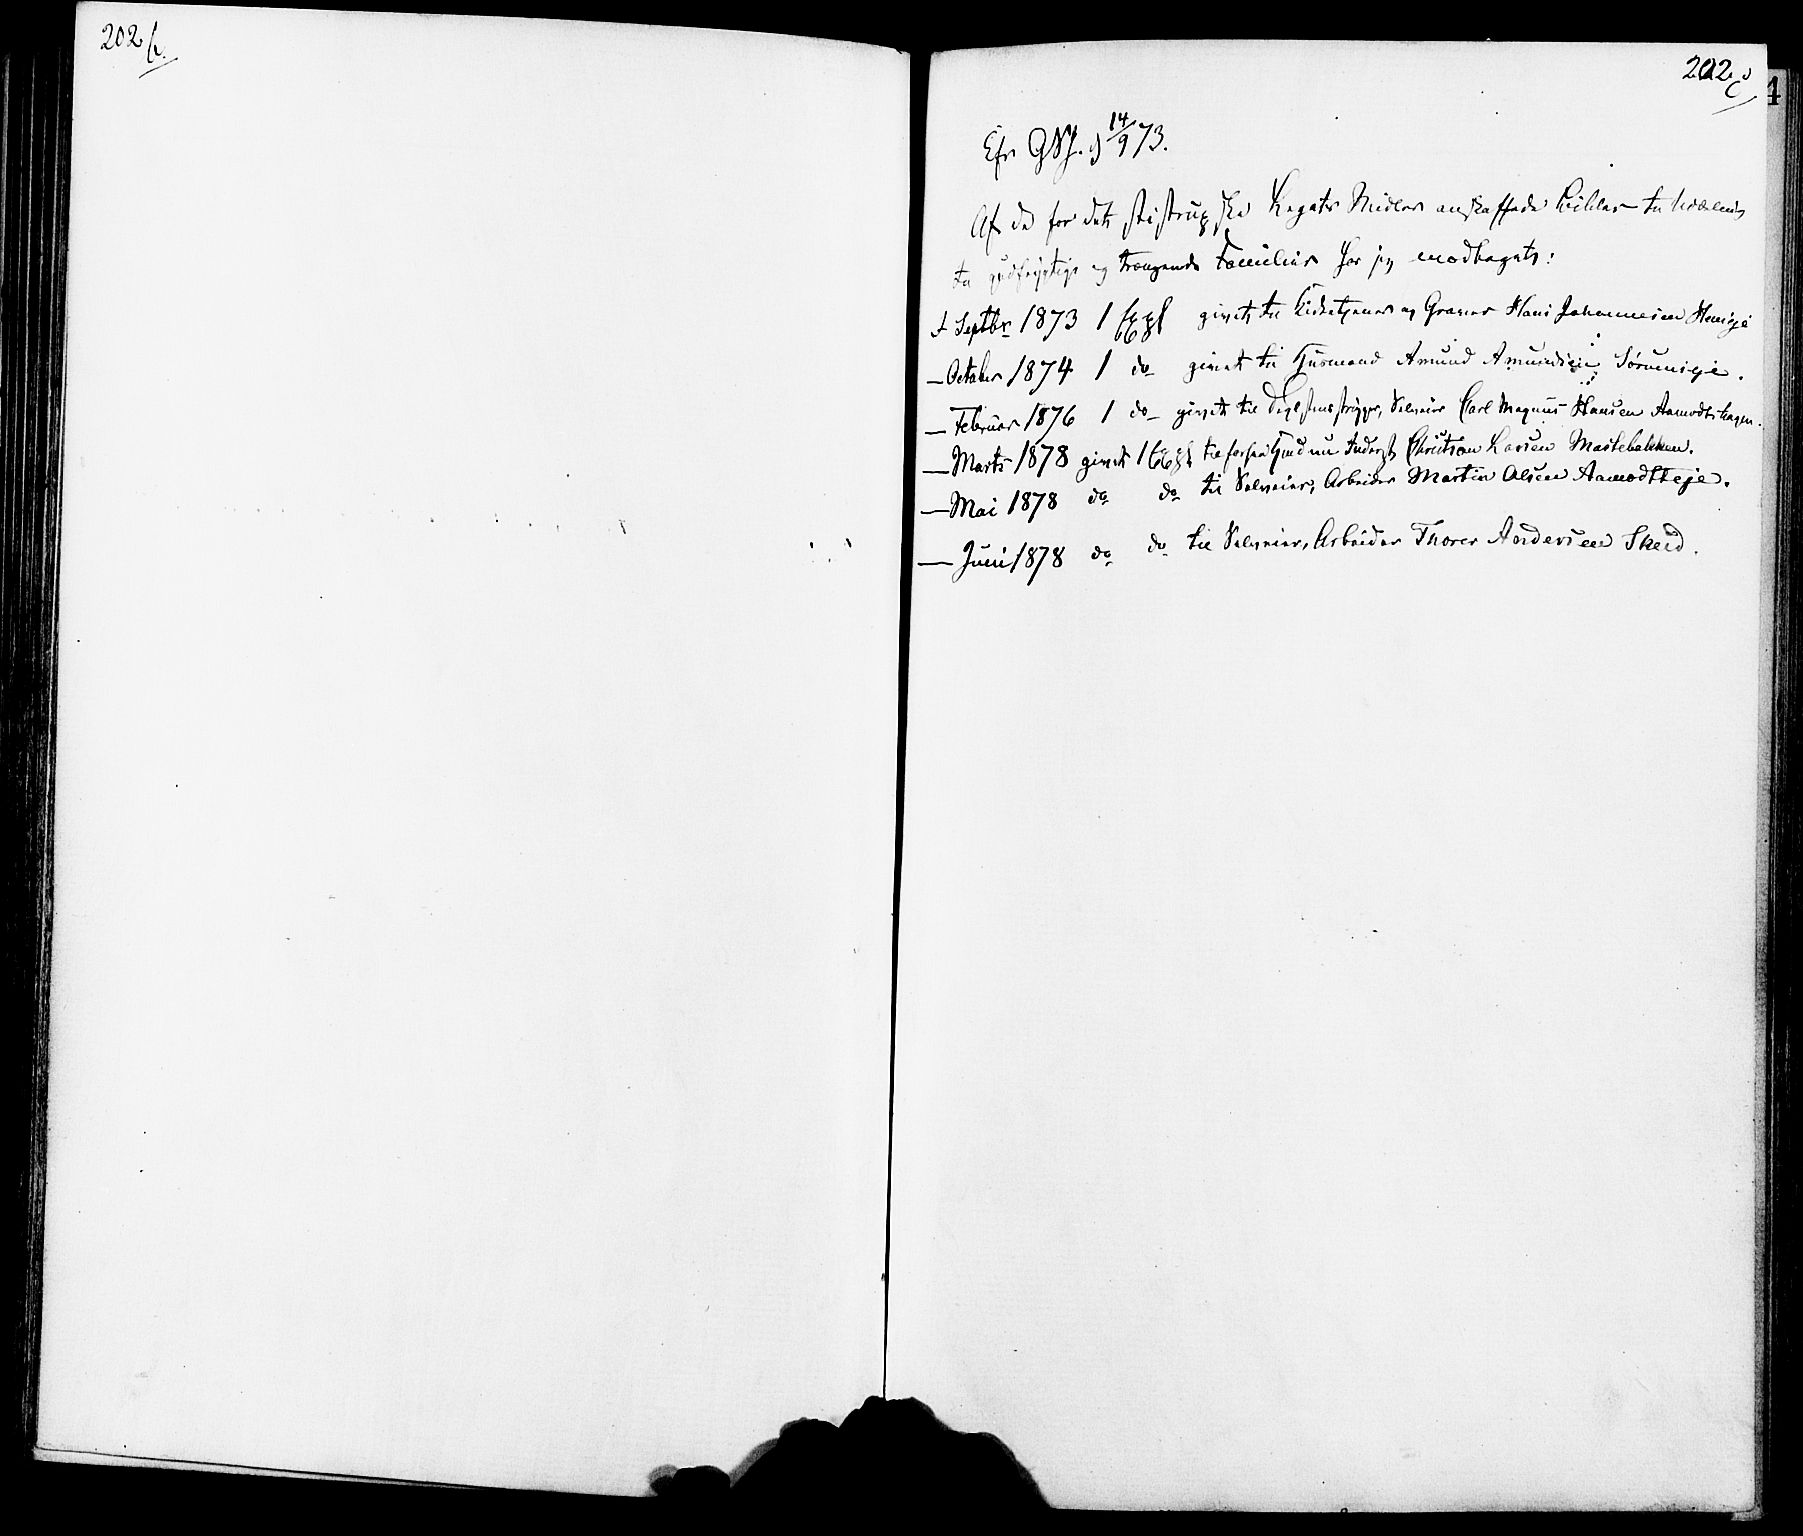 202b.
202c
Cfr GNJ. 9 14/9 73.
Af de for det Stistrupske Legats Midler anskaffede Bibler til Uddeling
til gudfrygtige og trængende Familier har jeg modtaget:
I Septbr 1873 1 Expl givet til Kirketjener og Graver Hans Johannesen
— October 1874 1 do givet til Husmand Amund Amundsen Sørumeje.
— Februar 1876 1 do givet til Selveier Carl Magnus Hansen Aamodthagen.
— Marts 1878 givet 1 Expl til nu Inderst Christian Larsen
— Mai 1878 do do til Selveier, Arbeider Martin Olsen Aamodteje.
— Juni 1878 do do til Selveier, Arbeider Thorer Andersen Skeid.
4